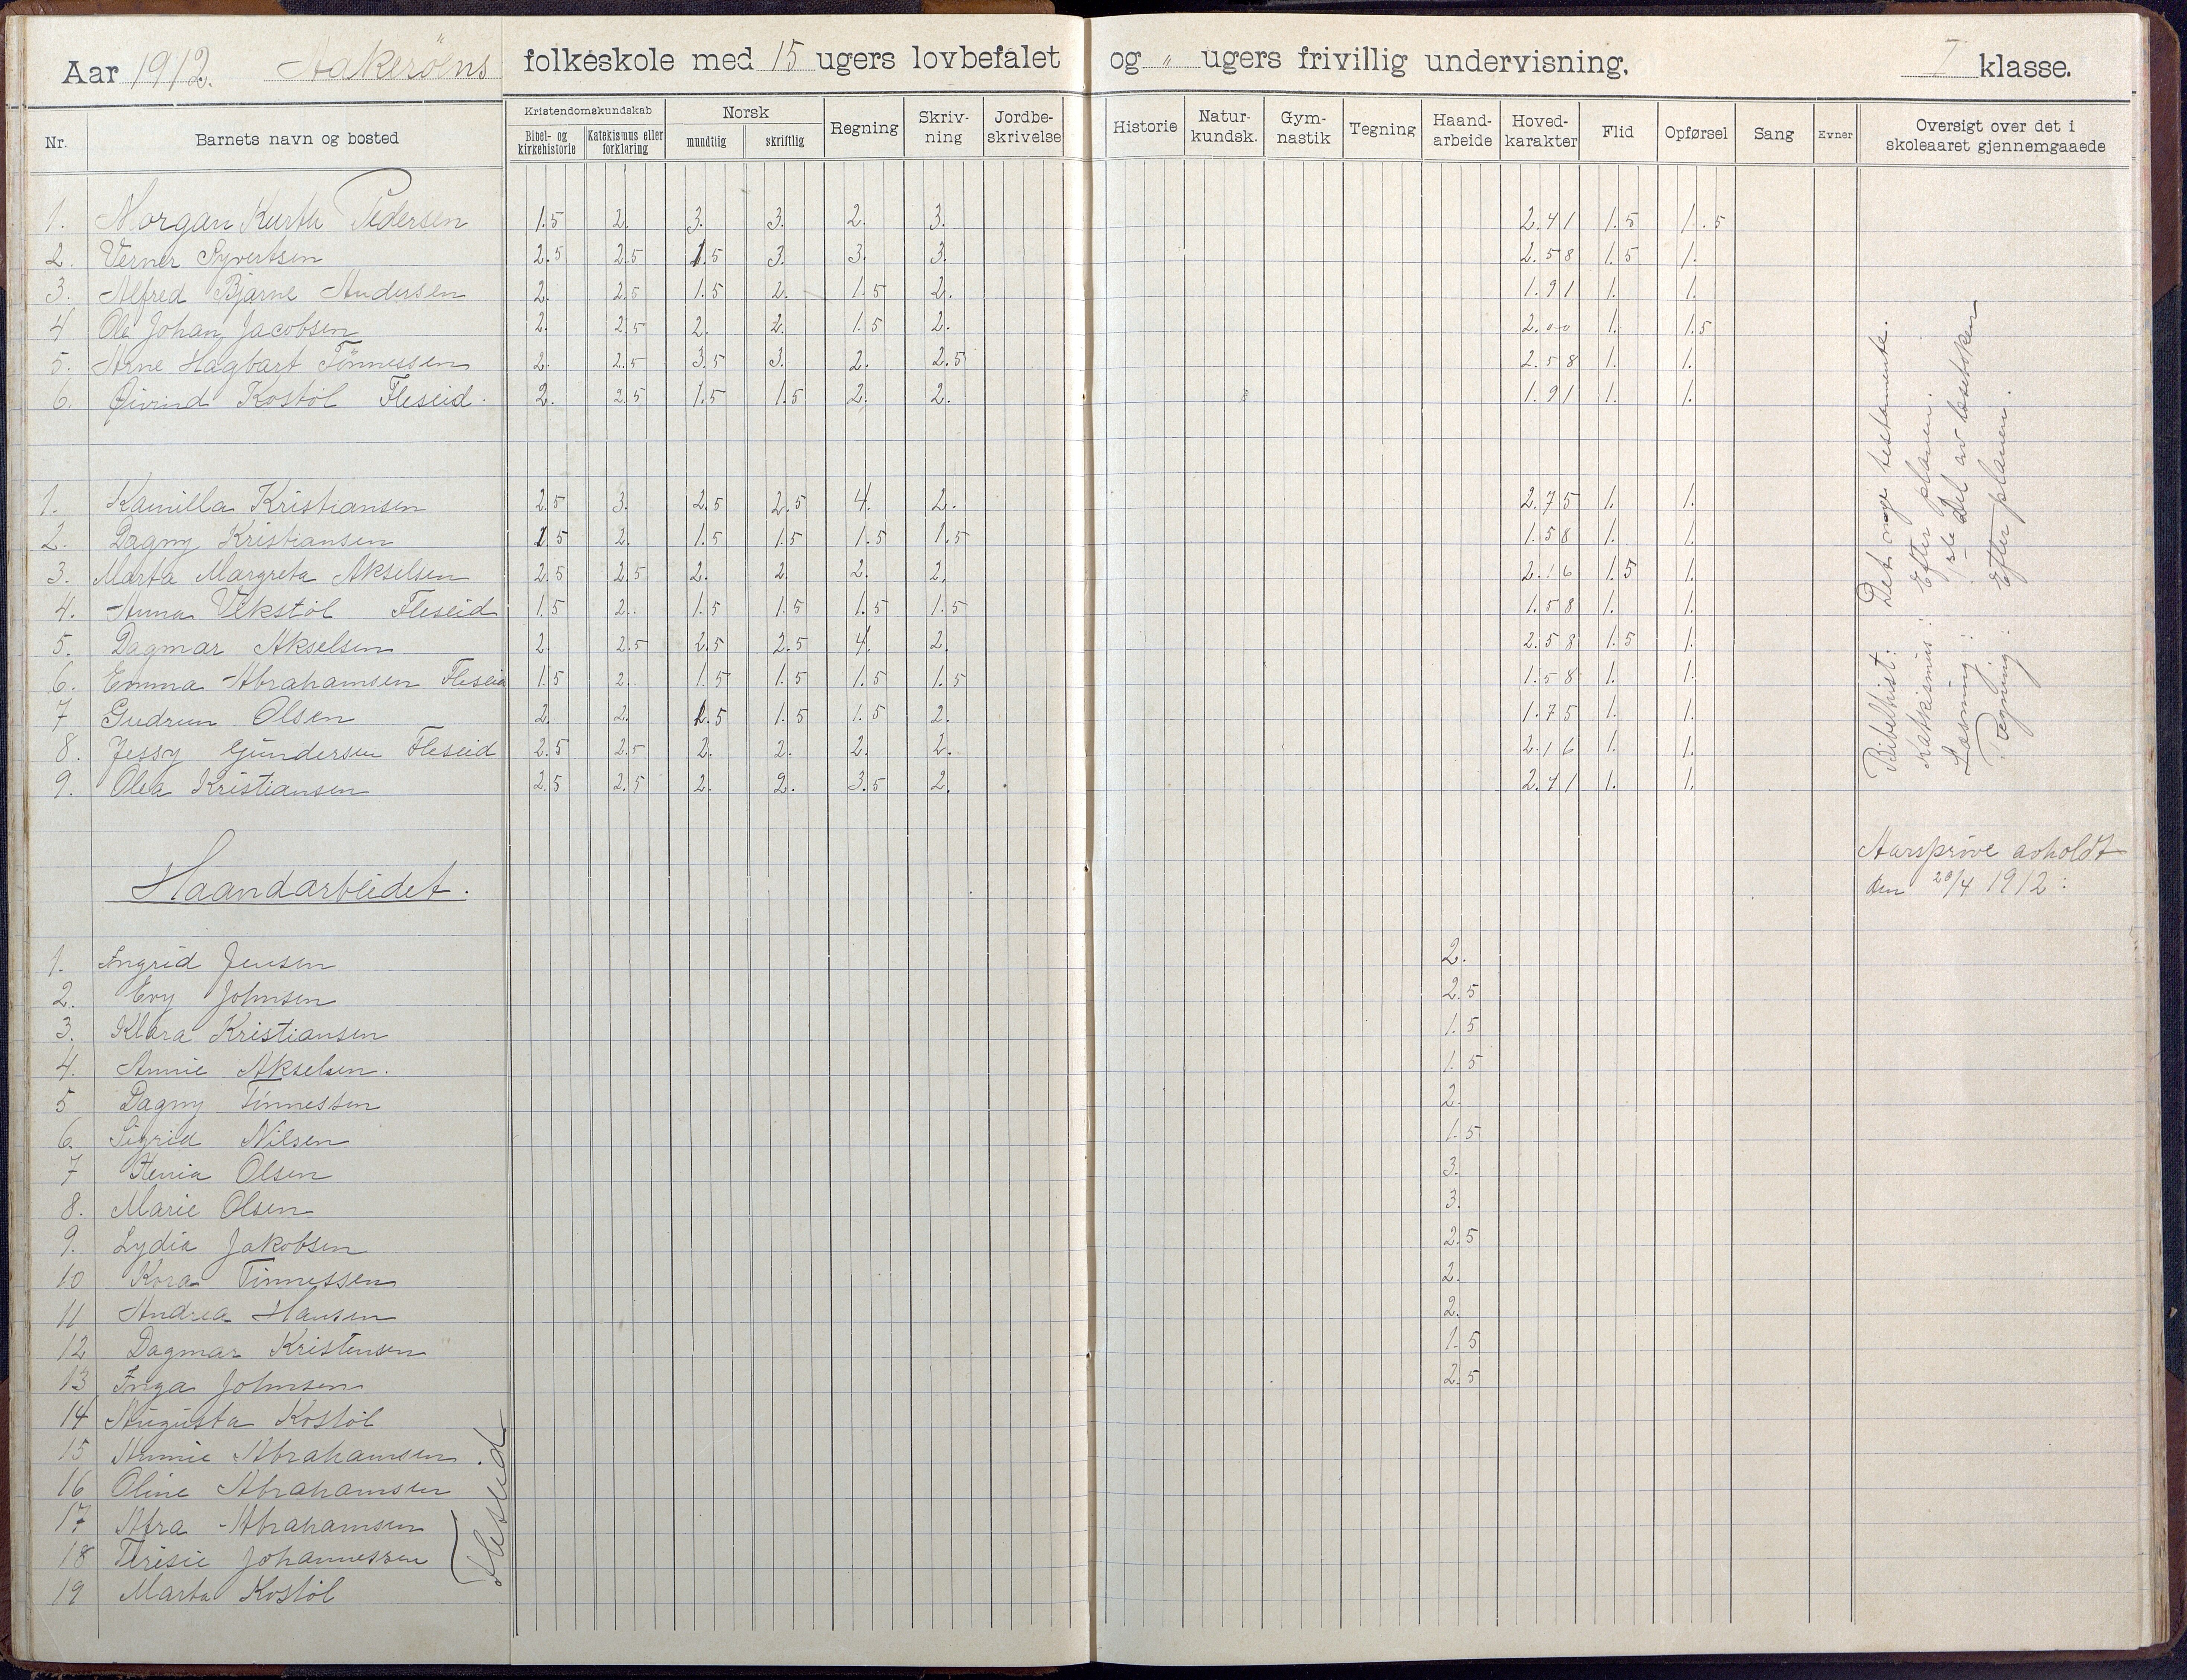 Aar 1912. Aakerøens folkeskole med 15 ugers lovbefalet og " ugers frivillig undervisning. I klasse.
Nr. Barnets navn og bosted Kristendomskundskab Bibel- og kirkehistorie Katekismus eller forklaring Norsk mundtlig skriftlig Regning Skriv-ning Jordbe-skrivelse Historie Natur-kundsk. Gym-nastik Tegning Haand-arbeide Hoved-karakter Flid Opførsel Sang Evner Oversigt over det i skoleaaret gjennemgaaede
1. Morgan Kurth Pedersen 1.5 2. 3. 3. 2. 3. 2.41 1.5 1.5
2. Verner Syvertsen 2.5 2.5 1.5 3. 3. 3. 2.58 1.5 1.
3. Alfred Bjarne Andersen 2. 2.5 1.5 2. 1.5 2. 1.91 1. 1.
4 Ole Johan Jacobsen 2. 2.5 2. 2. 1.5 2. 2.00 1. 1.5
5. Arne Hagbart Tønnessen 2. 2.5 3.5 3. 2. 2.5 2.58 1. 1.
6. Øivind Kostøl Fleseid. 2. 2.5 1.5 1.5 2. 2. 1.91 1. 1.
1. Kamilla Kristiansen 2.5 3. 2.5 2.5 4. 2. 2.75 1. 1.
2. Dagny Kristiansen 1.5 2. 1.5 1.5 1.5 1.5 1.58 1. 1.
3. Marta Margreta Akselsen 2.5 2.5 2. 2. 2. 2. 2.16 1.5 1.
4. Anna Vekstøl Fleseid 1.5 2. 1.5 1.5 1.5 1.5 1.58 1. 1.
5. Dagmar Akselsen 2. 2.5 2.5 2.5 4. 2. 2.58 1.5 1.
6. Emma Abrahamsen Fleseid 1.5 2. 1.5 1.5 1.5 1.5 1.58 1. 1.
7 Gudrun Olsen 2. 2. 1.5 1.5 1.5 2. 1.75 1. 1.
8. Jessy Gundersen Fleseid 2.5 2.5 2. 2. 2. 2. 2.16 1. 1.
9. Olea Kristiansen 2.5 2.5 2. 2. 3.5 2. 2.41 1. 1.
Bibelhist: Det nye testamente.
Katkismus: Efter planen.
Læsning: 1ste Del av læseboken
Tegning: Efter planen.
Aarsprøve avholdt
den 20/4 1912:
Haandarbeidet.
1. Ingrid Jensen 2.
2. Evy Johnsen 2.5
3. Klara Kristiansen 1.5
4. Annie Akselsen. 1.5
5 Dagny Tønnessen 2.
6. Sigrid Nilsen 1.5
7 Henia Olsen 3.
8. Marie Olsen 3.
9. Lydia Jakobsen 2.5
10 Kora Tønnessen 2.
11 Andrea Hansen 2.
12 Dagmar Kristensen 1.5
13 Inga Johnsen 2.5
14 Augusta Kostøl
15 Annie Abrahamsen.
16 Oline Abrahamsen
17 Alra Abrahamsen
18 Teresie Johannessen
19 Marta Kostøl
Fleseid